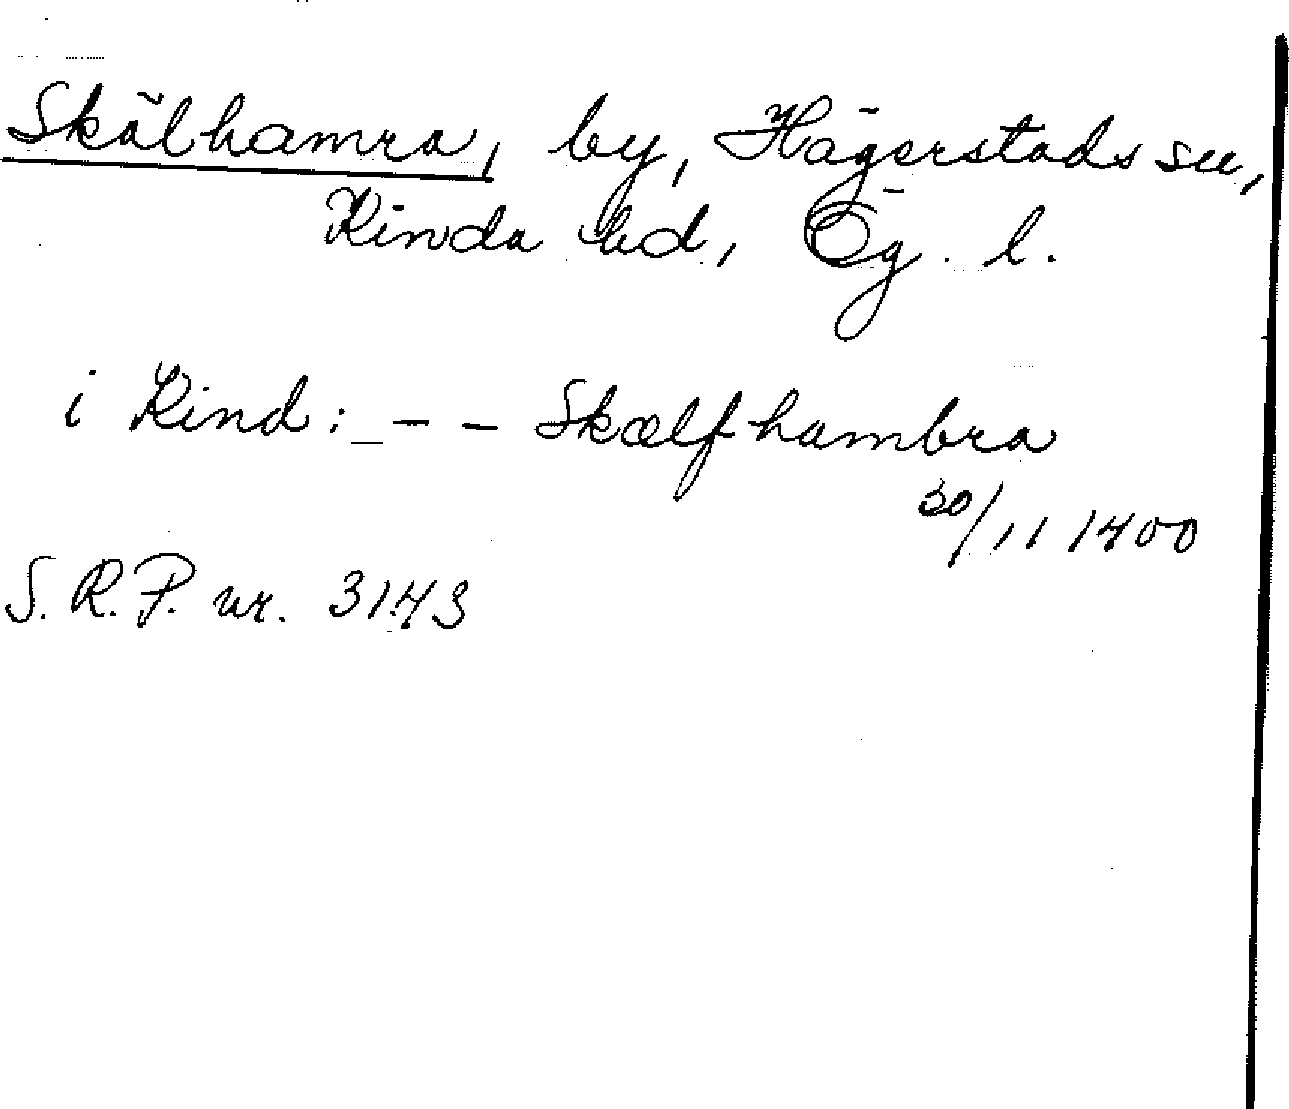 Skälhamra, by, Hägerstads sn,
Kinda hd, Ög. l.
i Kind: - - - Skælfhambra
30/11 1400
S. R. P. nr. 3143